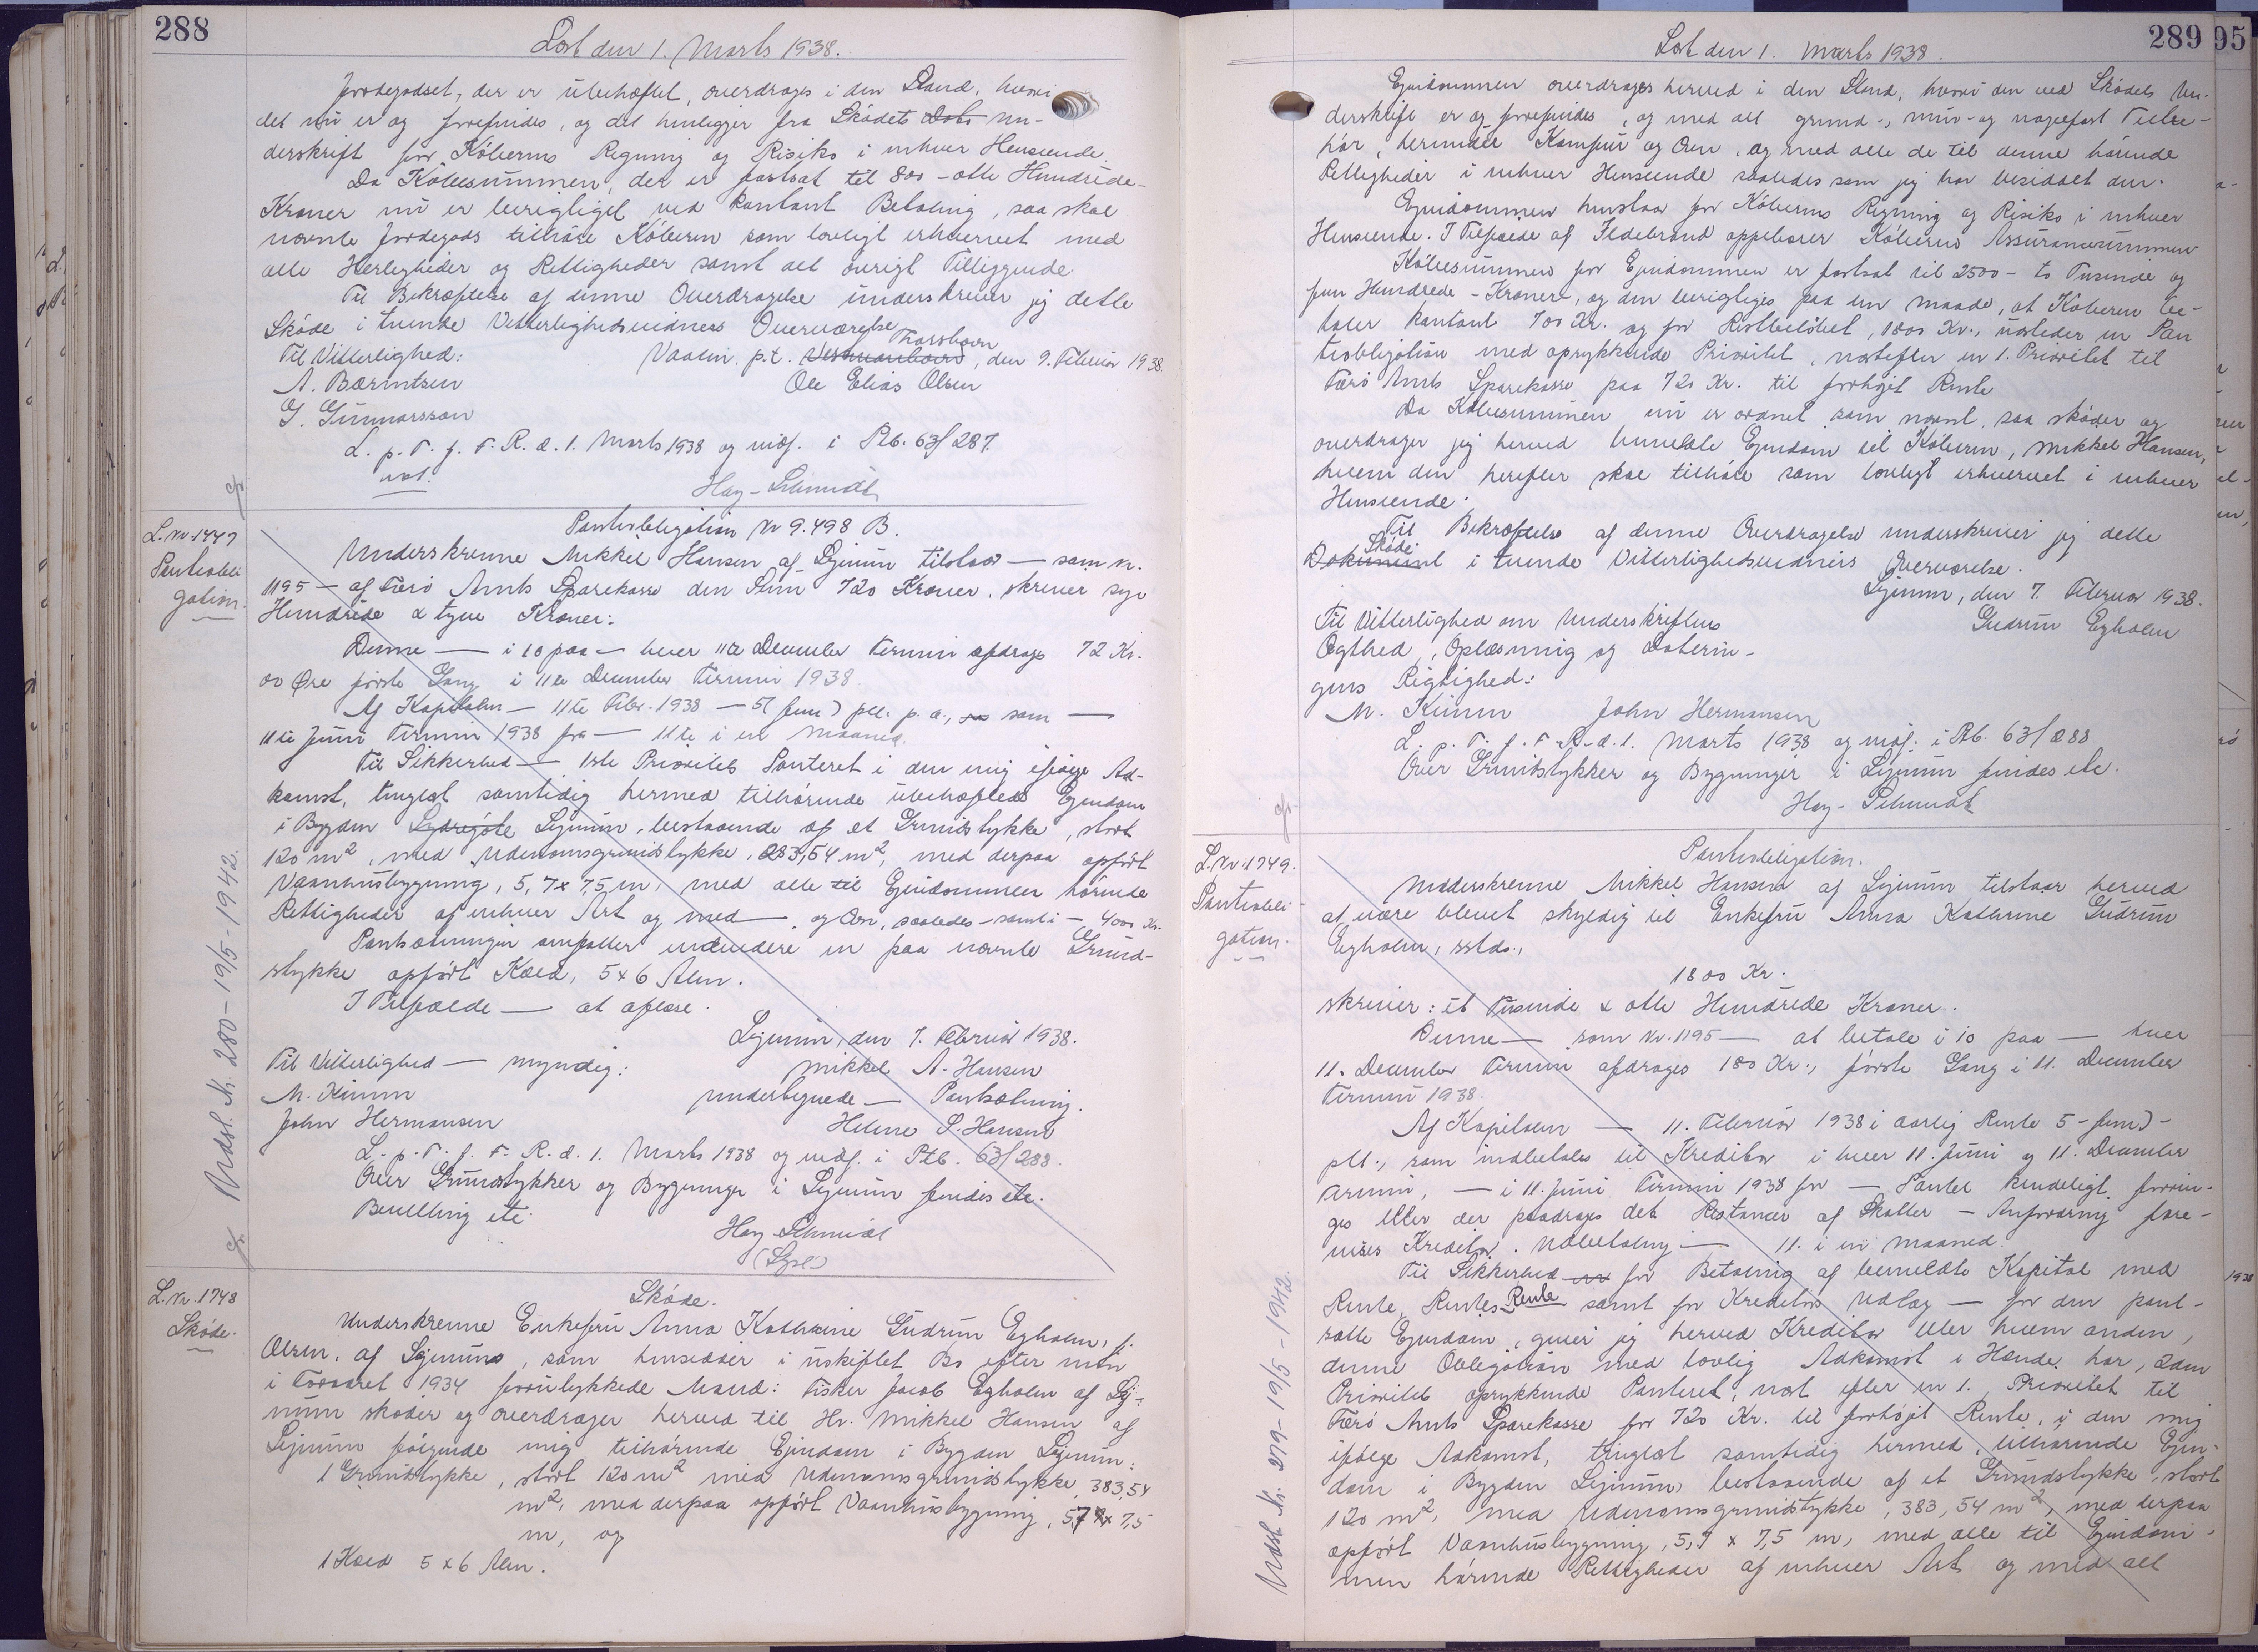 288
Læst den 1. Marts 1938.
Jordegodset, der er ubehæftet, overdrages i den Stand, hvori
det nu er og forefindes, og det henligger fra Skødets Dato un-
derskrift for Køberens Regning og Risiko i enhver Henseende.
Da Købesummen, der er fastsat til 800 - otte Hundrede -
Kroner nu er berigtiget ved kontant Betaling, saa skal
nævnte Jordegods tilhøre Køberen som lovligt erhvervet med
alle Herligheder og Rettigheder samt alt øvrigt Tilliggende
Til Bekræftelse af denne Overdragelse underskriver jeg dette
Skøde i tvende Vitterlighedsvidners Overværelse
Til Vitterlighed: Vaalin. p.t. Vestmanhavn Thorshavn, den 9. Februar 1938.
A. Bærintsen Ole Elias Olsen
G. Gunnarsson
L. p. T. f. F. R. d. 1. Marts 1938 og indf. i Ptb. 63/287.
Hay-Schmidt
L. Nr. 1747
Pantobli
gation.
Pantobligation Nr 9.498 B.
Underskrevne Mikkel Hansen af Lejnum tilstaar — som n.
1195 — af Færø Amts Sparekasse den Sum 720 Kroner, skriver syv
Hundrede & tyve Kroner.
Denne — i 10 paa — hver 11te December Termin afdrages 72 Kr.
00 Øre første Gang i 11te December Termin 1938.
Af Kapitalen — 11te Febr. 1938 — 5 (fem) pCt. p. a., som —
11te Juni Termin 1938 for — 11te i en Maaned.
Til Sikkerhed — 1ste Prioritets Panteret i den mig ifølge Ad-
komst, tinglæst samtidig hermed tilhørende ubehæftede Ejendom
i Bygden Lejnum, bestaaende af et Grundstykke, stort
120 m², med Udenomsgrundstykke, 383,54 m², med derpaa opført
Vaanhusbygning, 5,7 x 7,5 m, med alle til Ejendommen hørende
Rettigheder af enhver Art og med — og Ovn, saaledes — samt i — 4000 Kr.
Pantsætningen omfatter endvidere en paa nævnte Grund-
stykke opført Kæld, 5 x 6 Alen.
I Tilfælde — at aflæse.
Lejnum, den 7. Februar 1938.
Til Vitterlighed — myndig: Mikkel A. Hansen
M. Kimm undertegnede — Pantsætning.
John Hermansen Helene S. Hansen
L. p. T. f. F. R. d. 1. Marts 1938 og indf. i Ptb. 63/288.
Over Grundstykker og Bygninger i Lejnum findes etc.
Bevilling etc.
Hay-Schmidt
Udsl. Nr. 280 - 19/5 - 1942.
L. Nr. 1748
Skøde.
Skøde.
Underskrevne Enkefru Anna Kathrine Gudrun Egholm, f.
Olsen, af Lejnum, som hensidder i uskiftet Bo efter min
i Foraaret 1934 forulykkede Mand: Fisker Jacob Egholm af Lej-
num skøder og overdrager herved til Hr. Mikkel Hansen af
Lejnum følgende mig tilhørende Ejendom i Bygden Lejnum:
1 Grundstykke, stort 120 m² med Udenomsgrundstykke 383,54
m², med derpaa opført Vaanhusbygning, 5,7 x 7,5
m, og
1 Kæld 5 x 6 Alen.
289
95
Læst den 1. Marts 1938.
Ejendommen overdrages herved i den Stand, hvori den ved Skødets Un-
derskrift er og forefindes, og med alt grund-, mur- og nagelfast Tilbe-
hør, herunder Komfur og Ovn, og med alle de til denne hørende
Rettigheder i enhver Henseende saaledes som jeg har besiddet den.
Ejendommen henstaar for Køberens Regning og Risiko i enhver
Henseende. I Tilfælde af Ildebrand oppebærer Køberen Assurancesummen
Købesummen for Ejendommen er fastsat til 2500 - to Tusinde og
fem Hundrede - Kroner, og den berigtiges paa den Maade, at Køberen be-
taler kontant 700 Kr. og for Restbeløbet, 1800 Kr., udsteder en Pan
teobligation med oprykkende Prioritet, næstefter en 1. Prioritet til
Færø Amts Sparekasse paa 720 Kr. til forhøjet Rente
Da Købesummen nu er ordnet som nævnt, saa skøder og
overdrager jeg herved bemeldte Ejendom til Køberen, Mikkel Hansen,
hvem den herefter skal tilhøre som lovligt erhvervet i enhver
Henseende.
Til Bekræftelse af denne Overdragelse underskriver jeg dette
Dokument Skøde i tvende Vitterlighedsvidners Overværelse.
Lejnum, den 7. Februar 1938.
Til Vitterlighed om Underskriftens Gudrun Egholm
Ægthed, Oplæsning og Daterin-
gens Rigtighed:
M. Kimm John Hermansen
L. p. T. f. F. R. d. 1. Marts 1938 og indf. i Ptb. 63/288
Over Grundstykker og Bygninger i Lejnum findes etc.
Hay-Schmidt
L. Nr. 1749.
Pantobli-
gation.
Pantobligation.
Underskrevne Mikkel Hansen af Lejnum tilstaar herved
at være blevet skyldig til Enkefru Anna Kathrine Gudrun
Egholm, sstds.,
1800 Kr.
skriver: et Tusinde & otte Hundrede Kroner.
Denne — som Nr. 1195 — at betale i 10 paa — hver
11. December Termin afdrages 180 Kr., første Gang i 11. December
Termin 1938.
Af Kapitalen — 11. Februar 1938 i aarlig Rente 5 - fem) -
pCt., som indbetales til Kreditor i hver 11. Juni og 11. December
Termin, — i 11. Juni Termin 1938 for — Pantet kendeligt forrin-
ges eller der paadrages det Restancer af Skatter — Anfordring fore-
vises Kreditor. Udbetaling — 11. i en Maaned.
Til Sikkerhed for Betaling af bemeldte Kapital med
Rente, Rentes Rente samt for Kreditors Udlæg — for den pant-
satte Ejendom, giver jeg herved Kreditor eller hvem anden,
denne Obligation med lovlig Adkomst i Hænde har, 2den
Prioritets oprykkende Panteret, næst efter en 1. Prioritet til
Færø Amts Sparekasse for 720 Kr. til forhøjet Rente, i den mig
ifølge Adkomst, tinglæst samtidig hermed, tilhørende Ejen-
dom i Bygden Lejnum, bestaaende af et Grundstykke, stort
120 m², med Udenomsgrundstykke, 383,54 m², med derpaa
opført Vaanhusbygning, 5,7 x 7,5 m, med alle til Ejendom-
men hørende Rettigheder af enhver Art og med alt
Udsl. Nr. 279 - 19/5 - 1942.